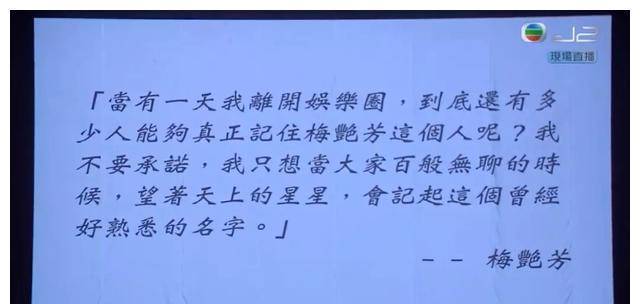 J2
現場直播
「當有一天我離開娛樂圈，到底還有多
少人能夠真正記住梅艷芳這個人呢？我
不要承諾，我只想當大家百般無聊的時
候，望著天上的星星，會記起這個曾經
好熟悉的名字。」
-- 梅艷芳